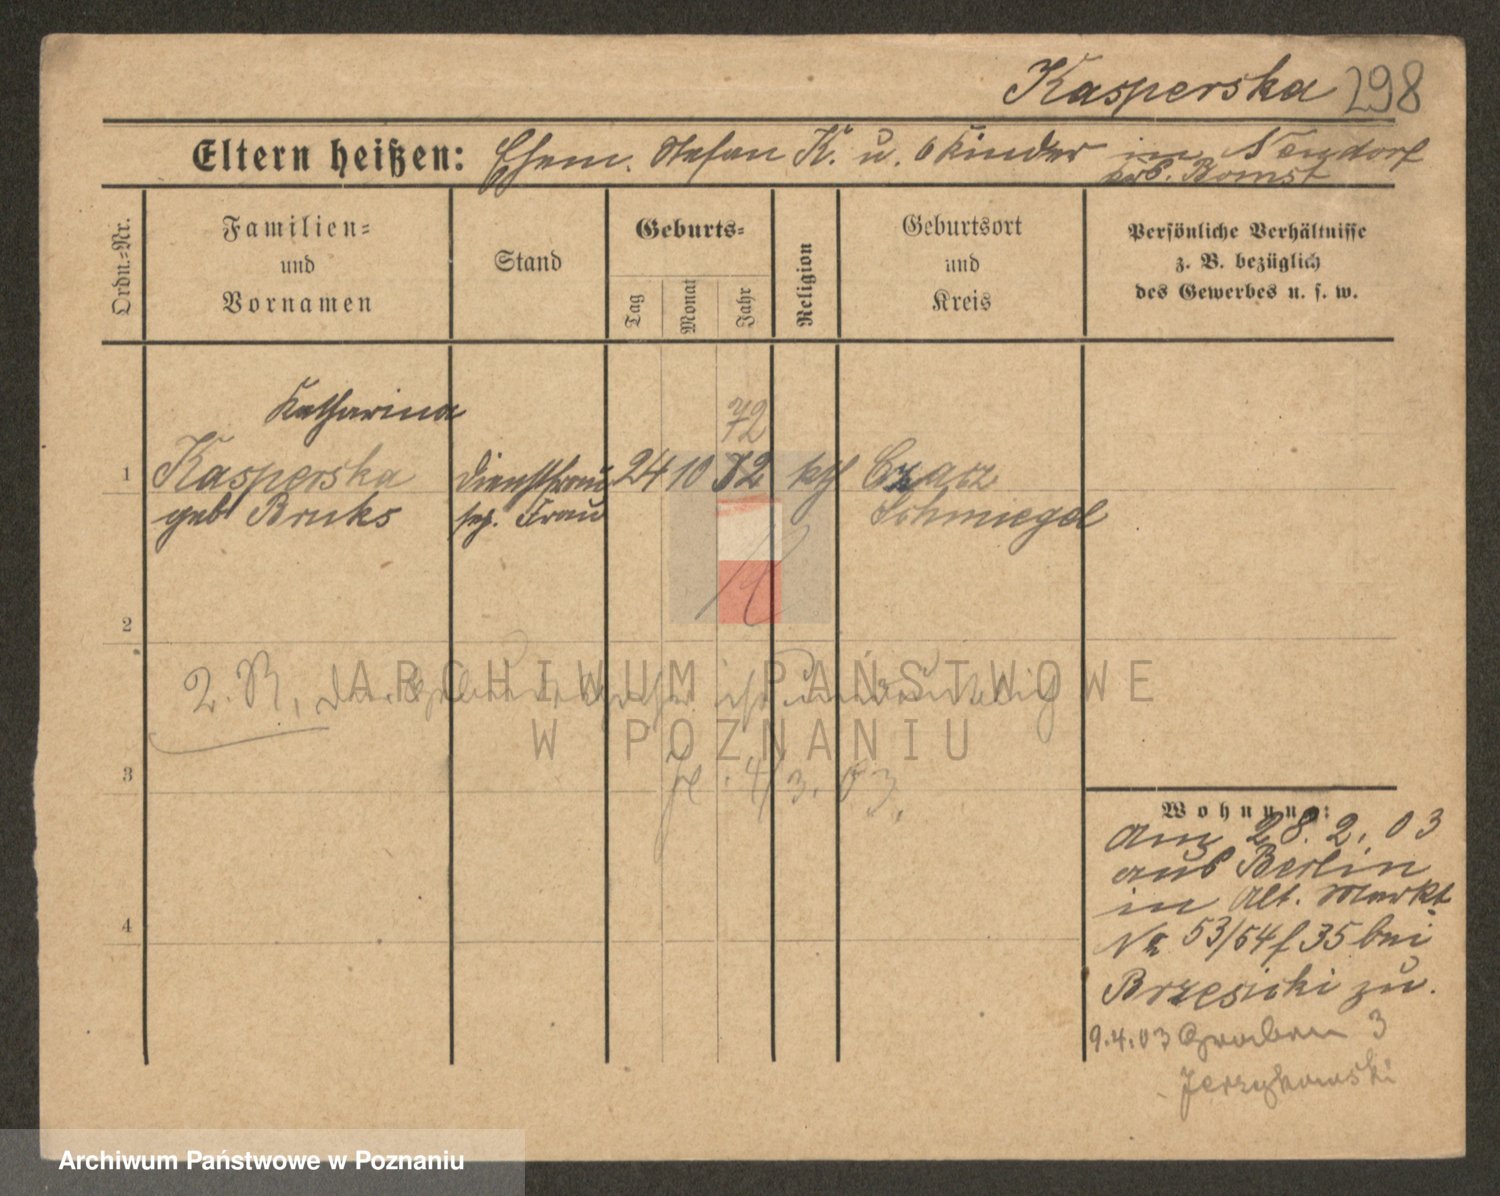 Kasperska 298
Eltern heißen: Ehem. Stefan K. u. 6 Kinder in Neudorf
Krs. Bomst
Ordn.-Nr.
Familien-
und
Vornamen
Stand
Geburts-
Tag
Monat
Jahr
Religion
Geburtsort
und
Kreis
Persönliche Verhältnisse
z. B. bezüglich
des Gewerbes u. s. w.
Katharina
72
1 Kasperska Dienstfrau 24 10 72 kth Czacz
geb Bruks sep. Frau Schmiegel
2
2. R, das ist undeutlich
3
4/3. 03.
4
Wohnung:
am 28. 2. 03
aus Berlin
in Alt. Markt
No 53/54 f 35 bei
Brzesicki zu.
9.4.03 Graben 3
Jerzykowski
ARCHIWUM PAŃSTWOWE
W POZNANIU
Archiwum Państwowe w Poznaniu